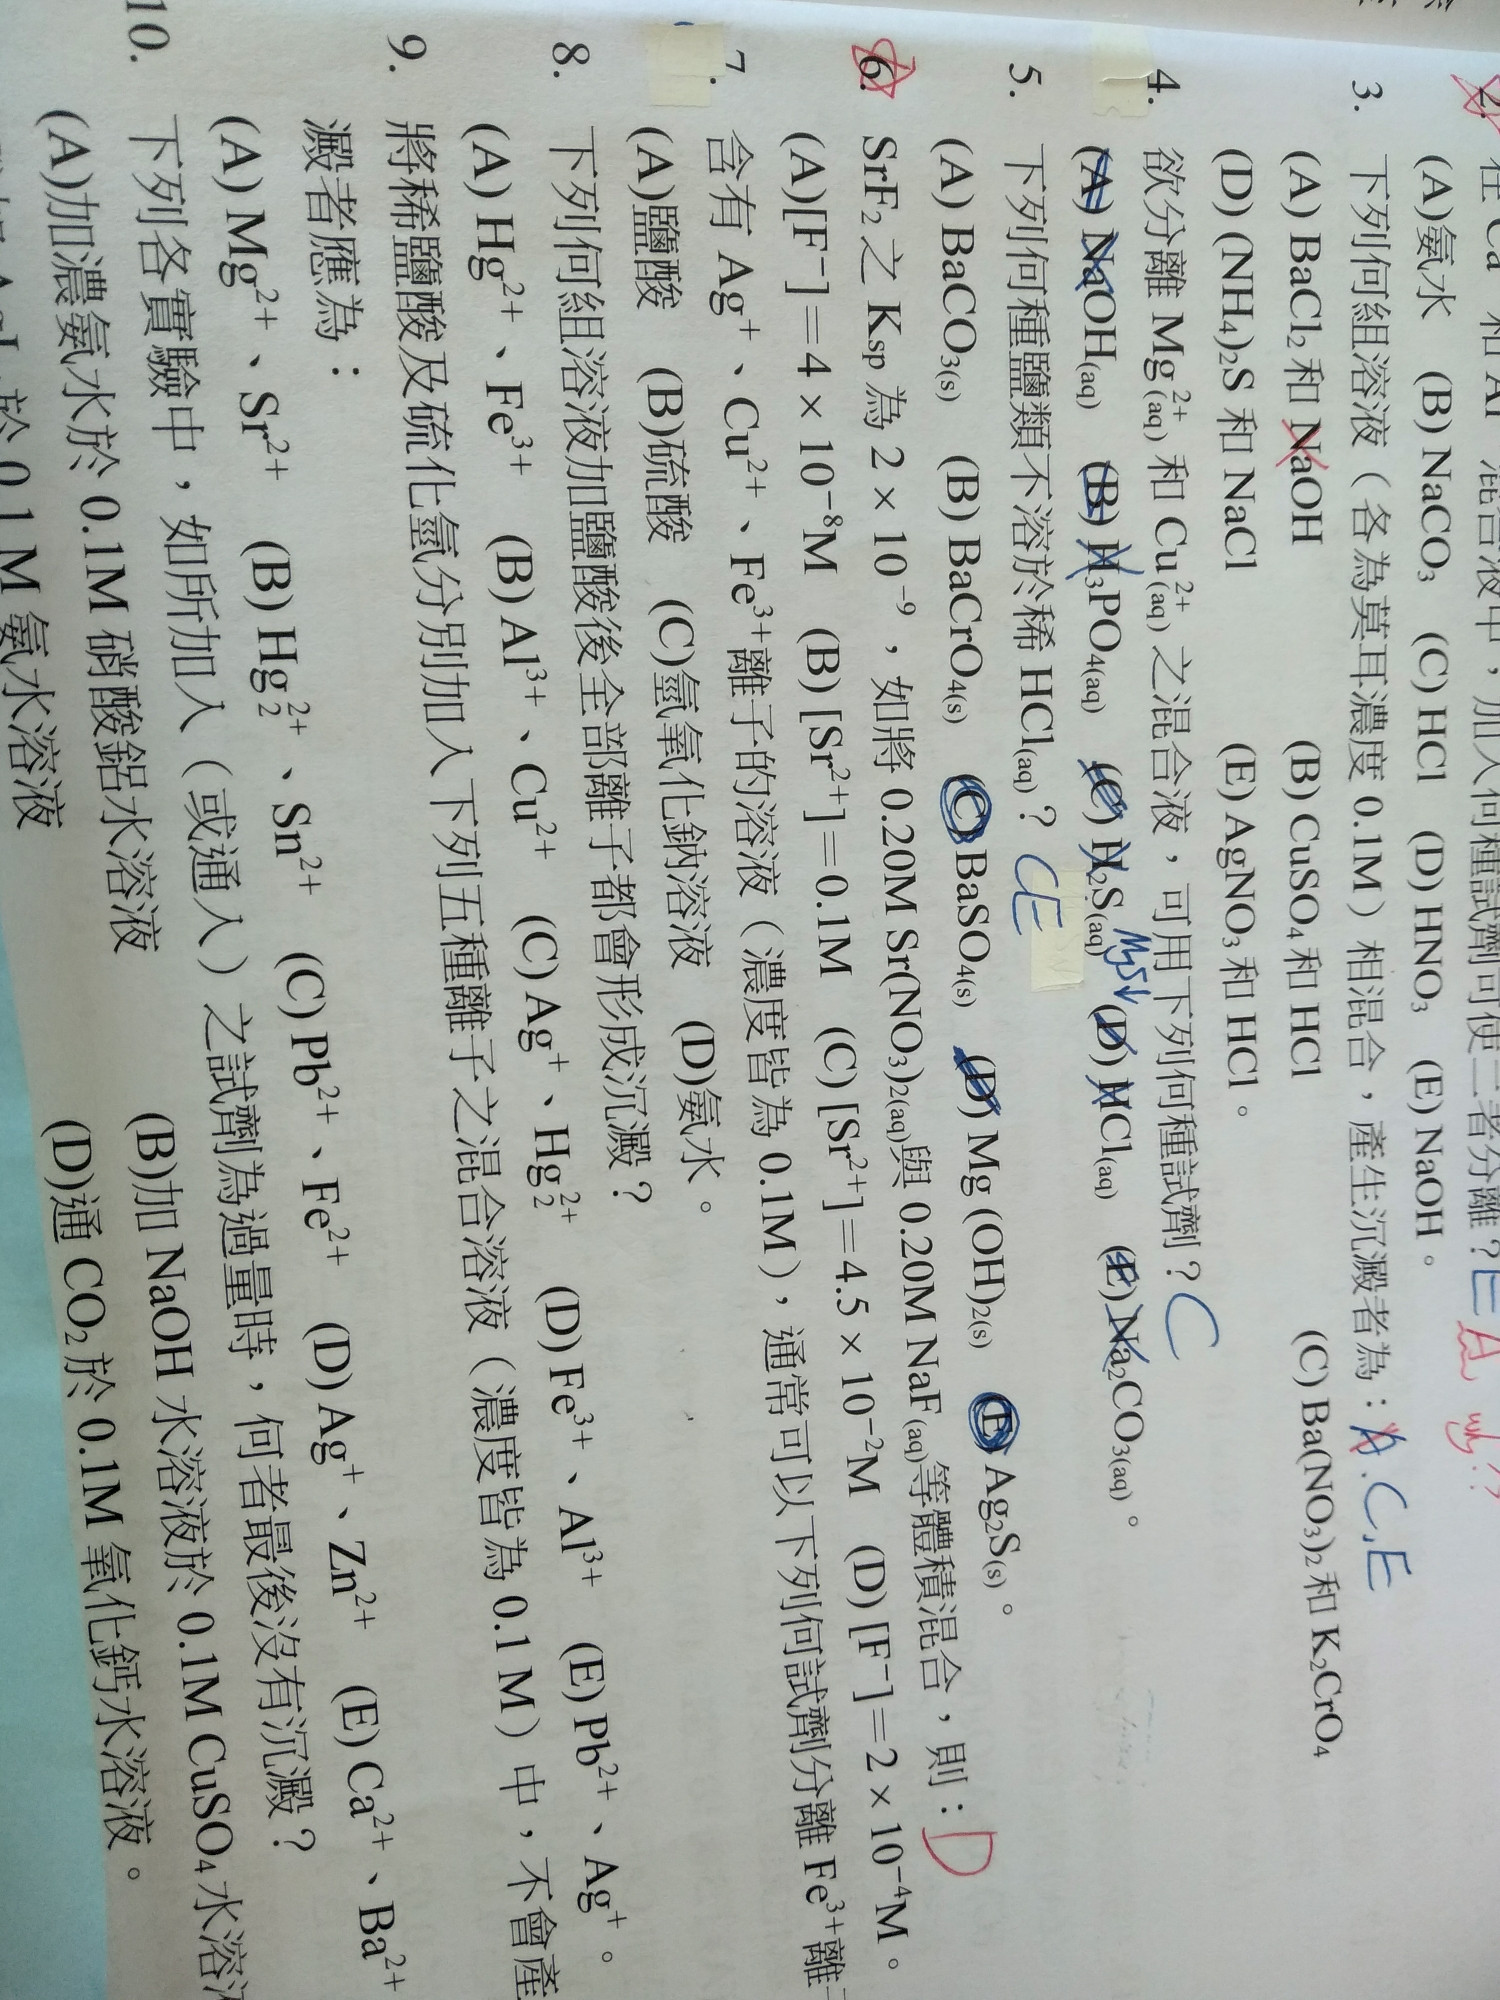 2.
在 Ca 和 Al 混合液中，加入何種試劑可使二者分離？E A
(A)氨水 (B) NaCO₃ (C) HCl (D) HNO₃ (E) NaOH。
3. 下列何組溶液（各為莫耳濃度 0.1M）相混合，產生沉澱者為：A.C,E
(A) BaCl₂ 和 NaOH (B) CuSO₄ 和 HCl (C) Ba(NO₃)₂ 和 K₂CrO₄
(D) (NH₄)₂S 和 NaCl (E) AgNO₃ 和 HCl。
4. 欲分離 Mg²⁺(aq) 和 Cu²⁺(aq) 之混合液，可用下列何種試劑？C
MgS↓
(A) NaOH(aq) (B) H₃PO₄(aq) (C) H₂S(aq) (D) HCl(aq) (E) Na₂CO₃(aq)。
5. 下列何種鹽類不溶於稀 HCl(aq)？CE
(A) BaCO₃(s) (B) BaCrO₄(s) (C) BaSO₄(s) (D) Mg (OH)₂(s) (E) Ag₂S(s)。
6. SrF₂ 之 Ksp 為 2 × 10⁻⁹，如將 0.20M Sr(NO₃)₂(aq)與 0.20M NaF(aq)等體積混合，則：D
(A)[F⁻]＝4 × 10⁻⁸M (B) [Sr²⁺]＝0.1M (C) [Sr²⁺]＝4.5 × 10⁻²M (D) [F⁻]＝2 × 10⁻⁴M。
7. 含有 Ag⁺、Cu²⁺、Fe³⁺離子的溶液（濃度皆為 0.1M），通常可以下列何試劑分離 Fe³⁺離
(A)鹽酸 (B)硫酸 (C)氫氧化鈉溶液 (D)氨水。
8. 下列何組溶液加鹽酸後全部離子都會形成沉澱？
(A) Hg²⁺、Fe³⁺ (B) Al³⁺、Cu²⁺ (C) Ag⁺、Hg₂²⁺ (D) Fe³⁺、Al³⁺ (E) Pb²⁺、Ag⁺。
9. 將稀鹽酸及硫化氫分別加入下列五種離子之混合溶液（濃度皆為 0.1 M）中，不會產
澱者應為：
(A) Mg²⁺、Sr²⁺ (B) Hg₂²⁺、Sn²⁺ (C) Pb²⁺、Fe²⁺ (D) Ag⁺、Zn²⁺ (E) Ca²⁺、Ba²⁺
10. 下列各實驗中，如所加入（或通入）之試劑為過量時，何者最後沒有沉澱？
(A)加濃氨水於 0.1M 硝酸鋁水溶液 (B)加 NaOH 水溶液於 0.1M CuSO₄ 水溶
於 0.1 M 氨水溶液 (D)通 CO₂ 於 0.1M 氧化鈣水溶液。